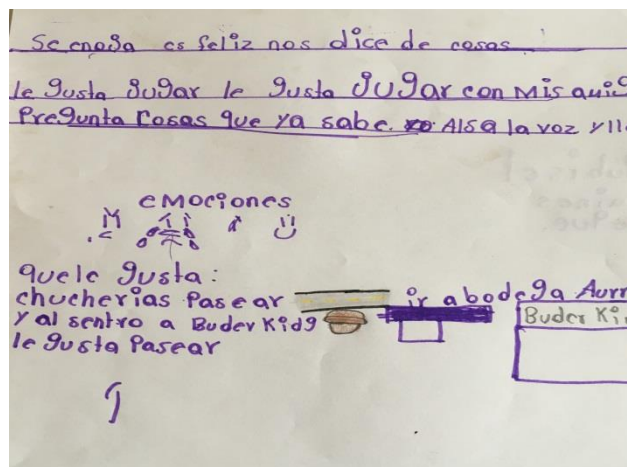 Se enoja es feliz nos dice de cosas
le gusta jugar le gusta jugar con Mis
Pregunta Cosas que ya sabe. Alsa la voz y
eMociones
que le gusta:
chucherias Pasear ir a bodega Aurr
y al sentro a Buder Kidg
Buder Ki
le gusta Pasear